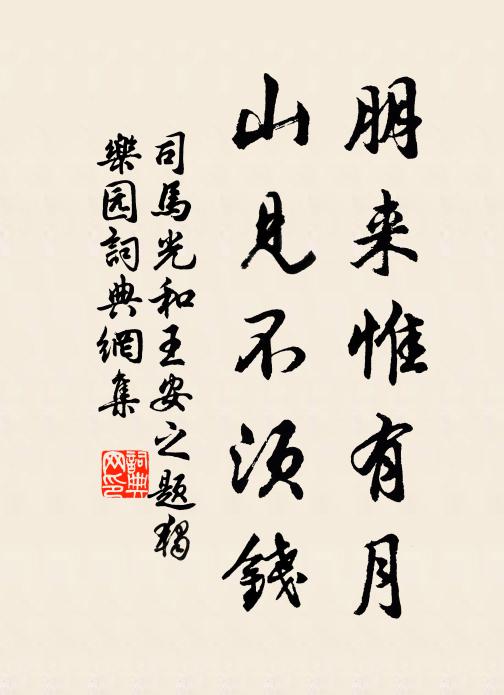 朋来惟有月
山見不須錢
司馬光和王安之題獨
樂园詞典網集
詞典网印